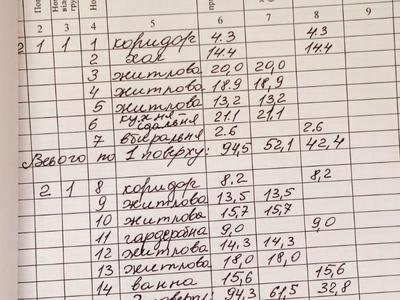 2 3 4 5 6 7 8 9
2 1 1 1 коридор 4.3 4.3
2 хол 14.4 14.4
3 житлова 20,0 20,0
4 житлова 18.9 18,9
5 житлова 13,2 13,2
6 кухня їдальня 21.1 21,1
7 вбиральня 2.6 2.6
Всього по 1 поверху: 94,5 52,1 42,4
2 1 8 коридор 8.2 8,2
9 житлова 13,5 13,5
10 житлова 15,7 15,7
11 гардеробна 9.0 9,0
12 житлова 14,3 14,3
13 житлова 18,0 18,0
14 ванна 15,6 15,6
поверху: 94,3 61,5 32,8